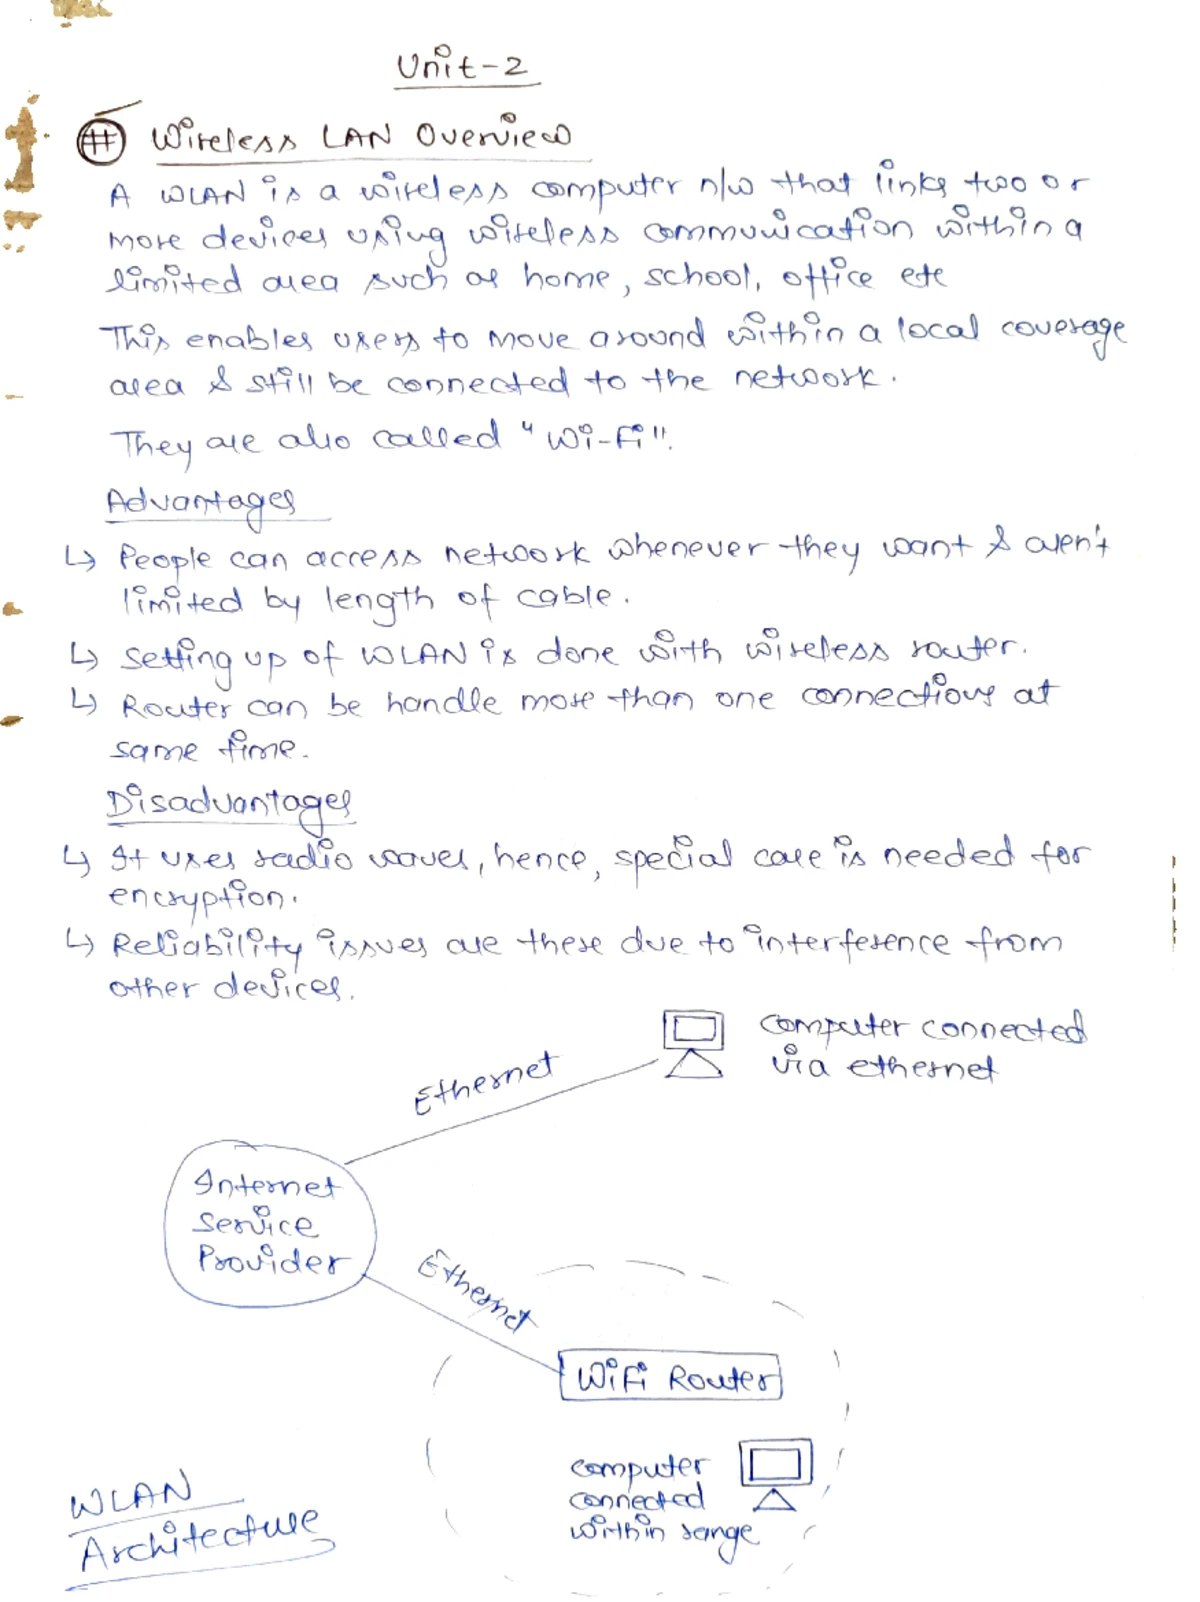 Unit-2
# Wireless LAN Overview
A WLAN is a wireless computer n/w that links two or
more devices using wireless communication within a
limited area such as home, school, office etc
This enables users to move around within a local coverage
area & still be connected to the network.
They are also called "Wi-Fi".
Advantages
↳ People can access network whenever they want & aren't
limited by length of cable.
↳ Setting up of WLAN is done with wireless router.
↳ Router can be handle more than one connections at
same time.
Disadvantages
↳ It uses radio waves, hence, special care is needed for
encryption.
↳ Reliability issues are there due to interference from
other devices.
computer connected
via ethernet
Ethernet
Internet
Service
Provider
Ethernet
WiFi Router
computer
connected
within range
WLAN
Architecture